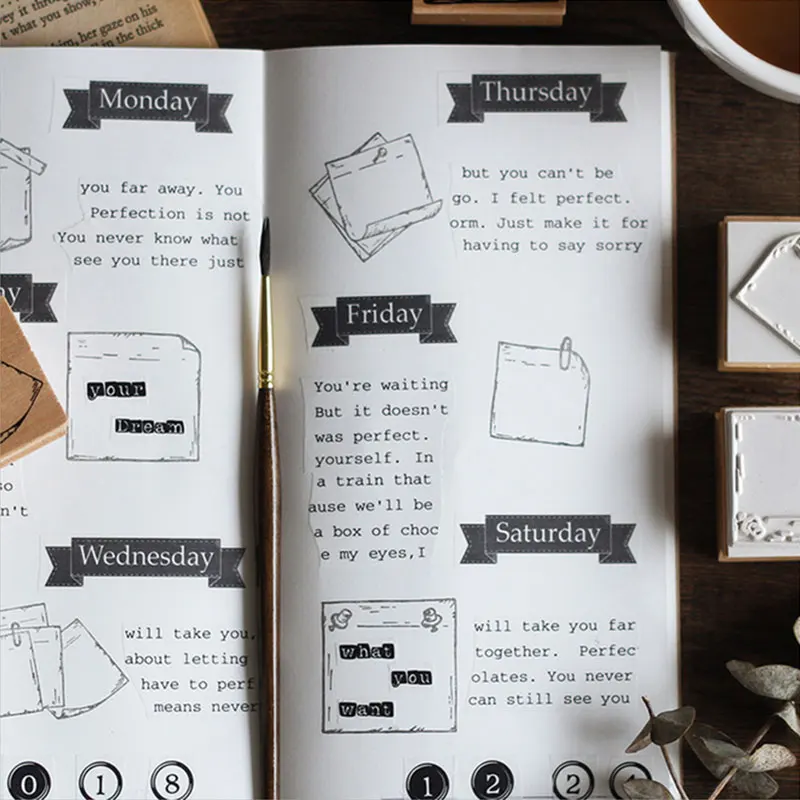 vey it through
what you show,
him, her gaze on his
in the thick
Monday
you far away. You
Perfection is not
You never know what
see you there just
your
Dream
so
n't
Wednesday
will take you,
about letting
have to perf
means never
0 1 8
Thursday
but you can't be
go. I felt perfect.
orm. Just make it for
having to say sorry
Friday
You're waiting
But it doesn't
was perfect.
yourself. In
a train that
ause we'll be
a box of choc
e my eyes,I
Saturday
what
you
want
will take you far
together. Perfec
olates. You never
can still see you
1 2 2